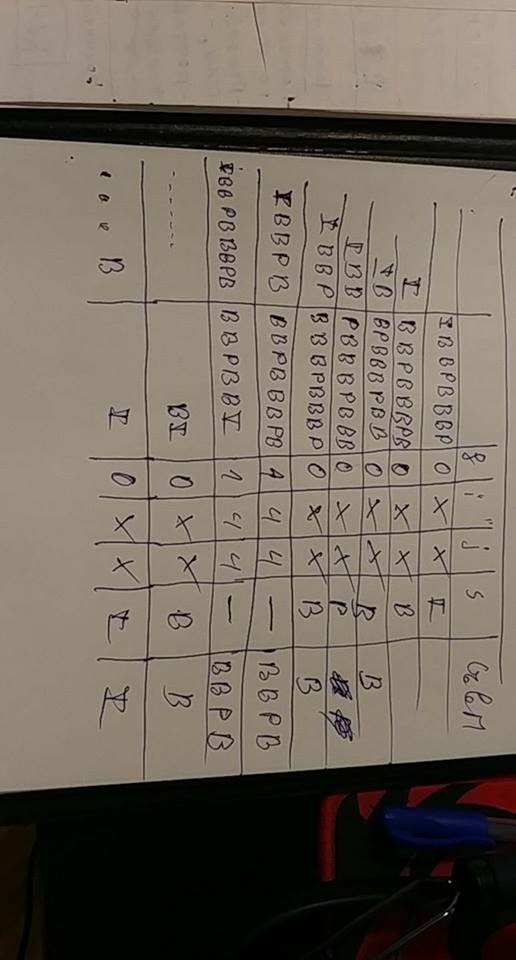 g i j s
IBBPBBBP 0 X X I
I BBPBBBPB 0 X X B
IB BPBBBPBB 0 X X B B
IBB PBBBPBB 0 X X P
IBBP BBBPBBBP 0 X X B B
IBBPB BBPBBBPB 1 4 4 — BBPB
IBBPBBBPB BBPBBI 1 4 4 — BBPB
....... BI 0 X X B B
... B I 0 X X I I